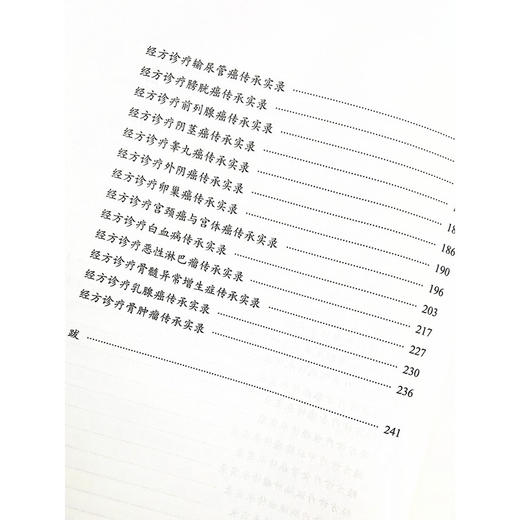 经方诊疗输尿管癌传承实录
经方诊疗膀胱癌传承实录
经方诊疗前列腺癌传承实录
经方诊疗阴茎癌传承实录
经方诊疗睾丸癌传承实录
经方诊疗外阴癌传承实录 186
经方诊疗卵巢癌传承实录 190
经方诊疗宫颈癌与宫体癌传承实录 196
经方诊疗白血病传承实录 203
经方诊疗恶性淋巴瘤传承实录 217
经方诊疗骨髓异常增生症传承实录 227
经方诊疗乳腺癌传承实录 230
经方诊疗骨肿瘤传承实录 236
跋 241